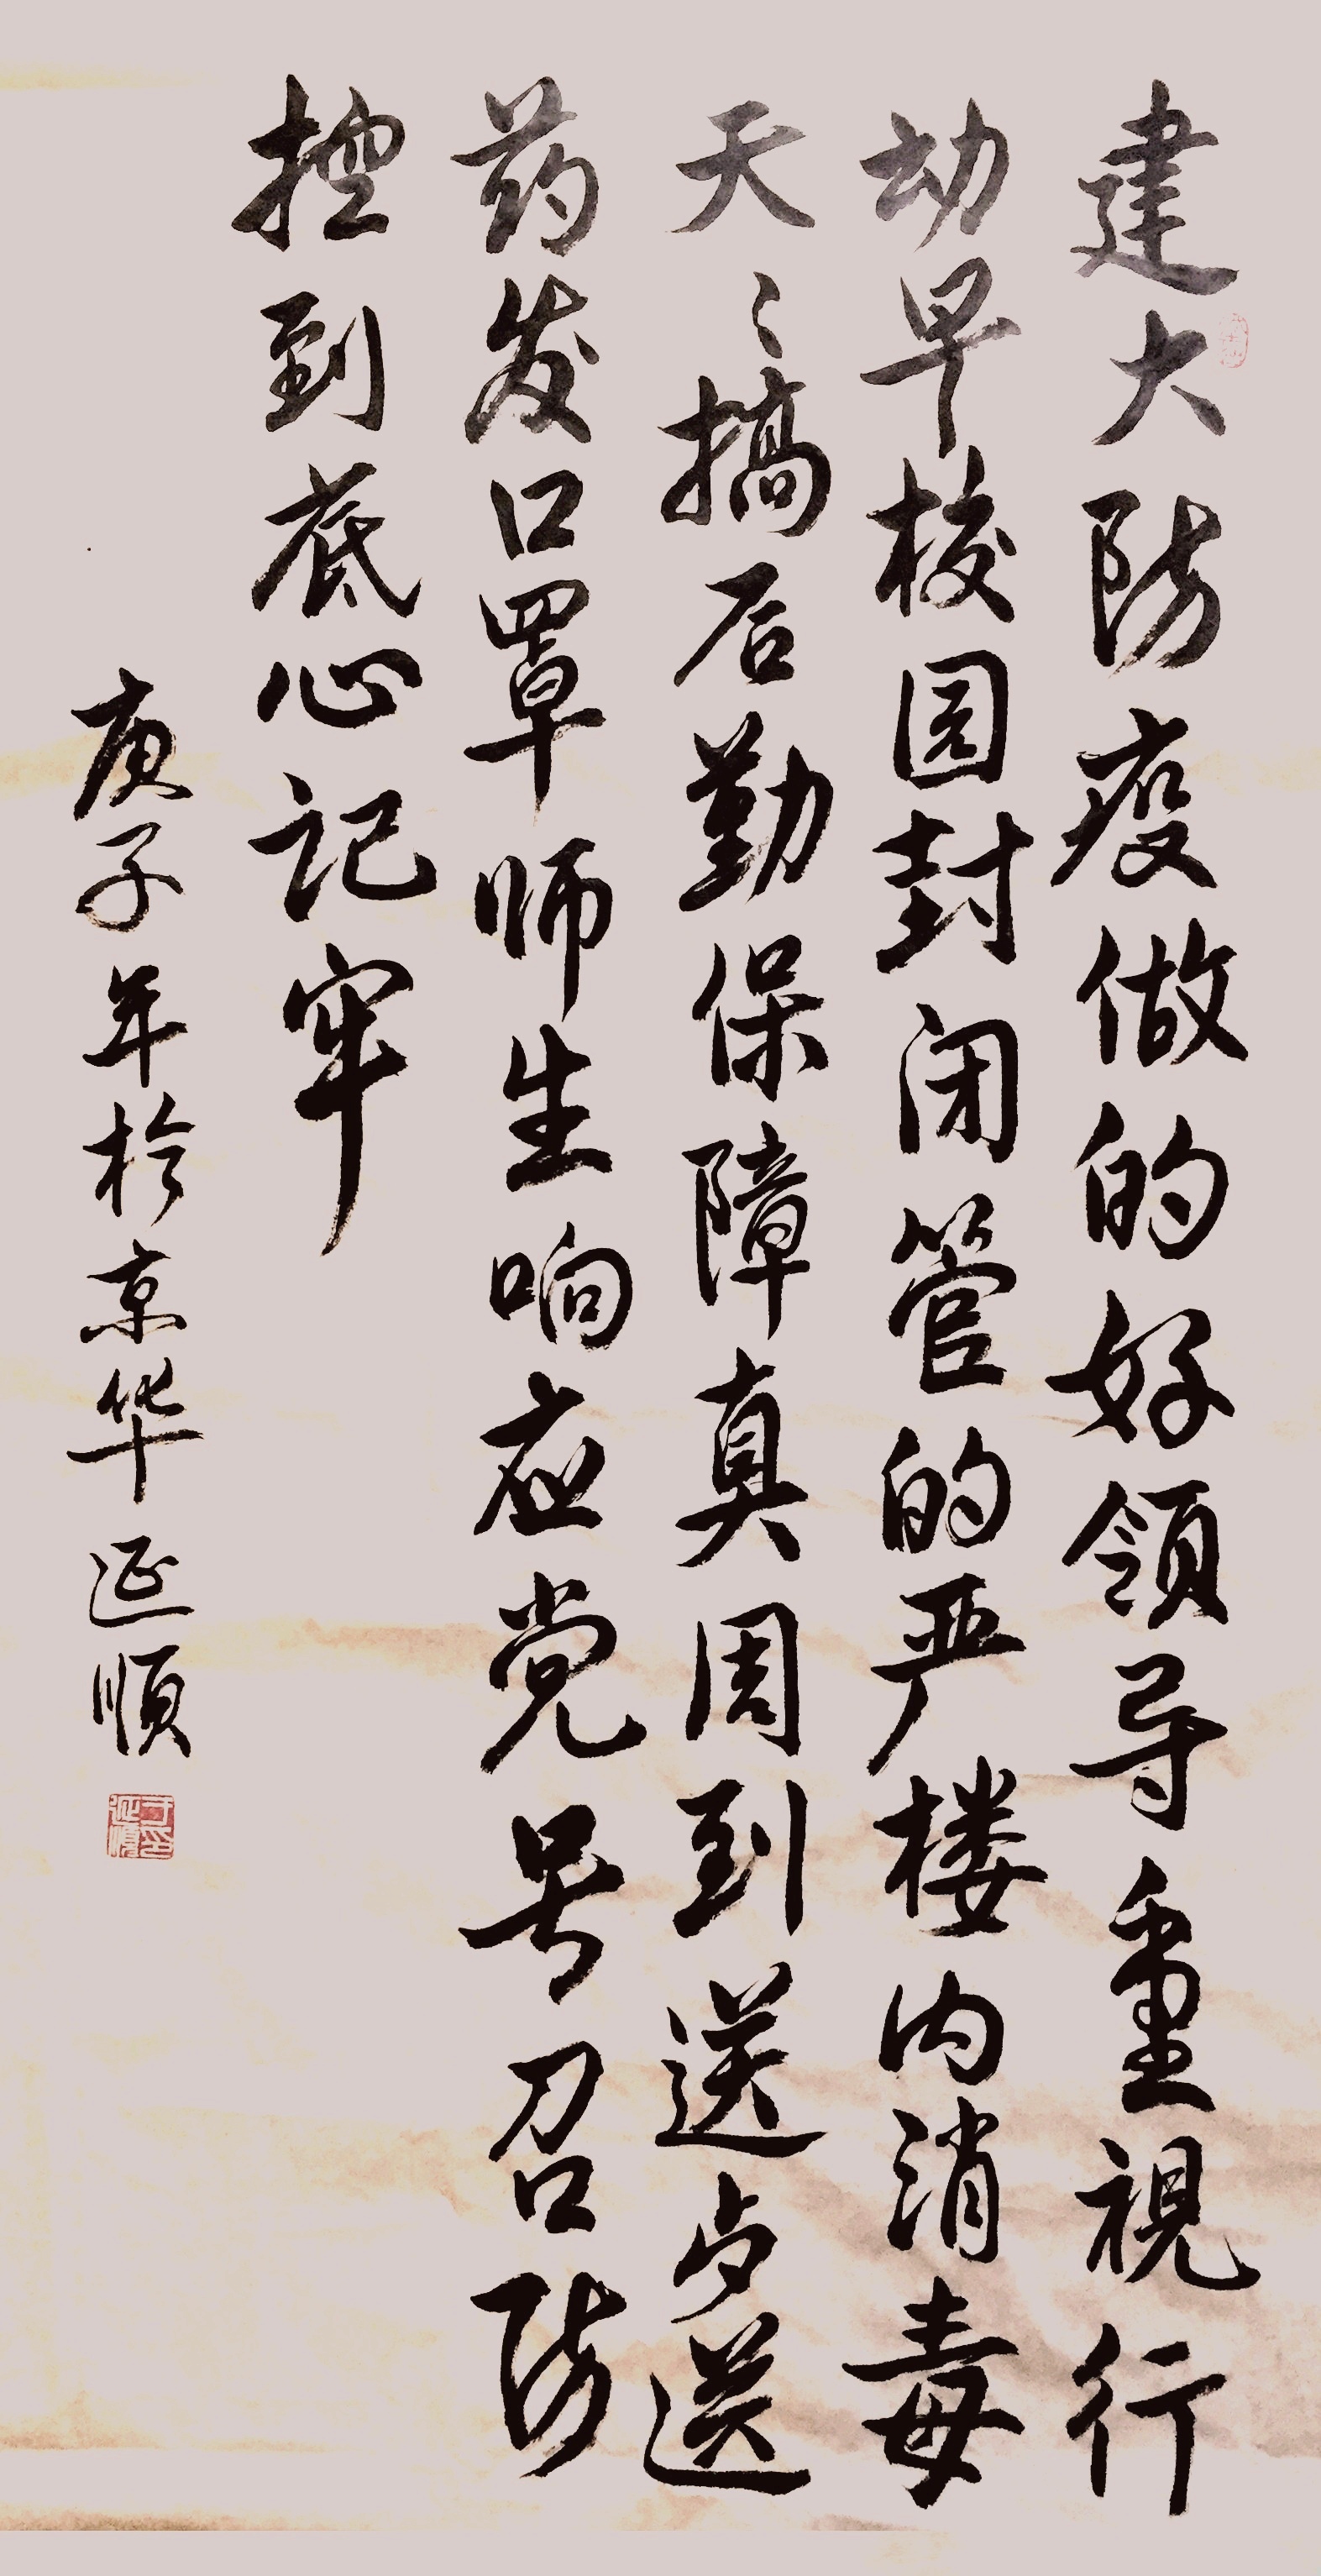 建大防疫做的好领导重視行
动早校园封闭管的严楼内消毒
天〻搞后勤保障真周到送步送
药发口罩师生响应党号召防
控到底心记牢
庚子年於京华延順
于印延順